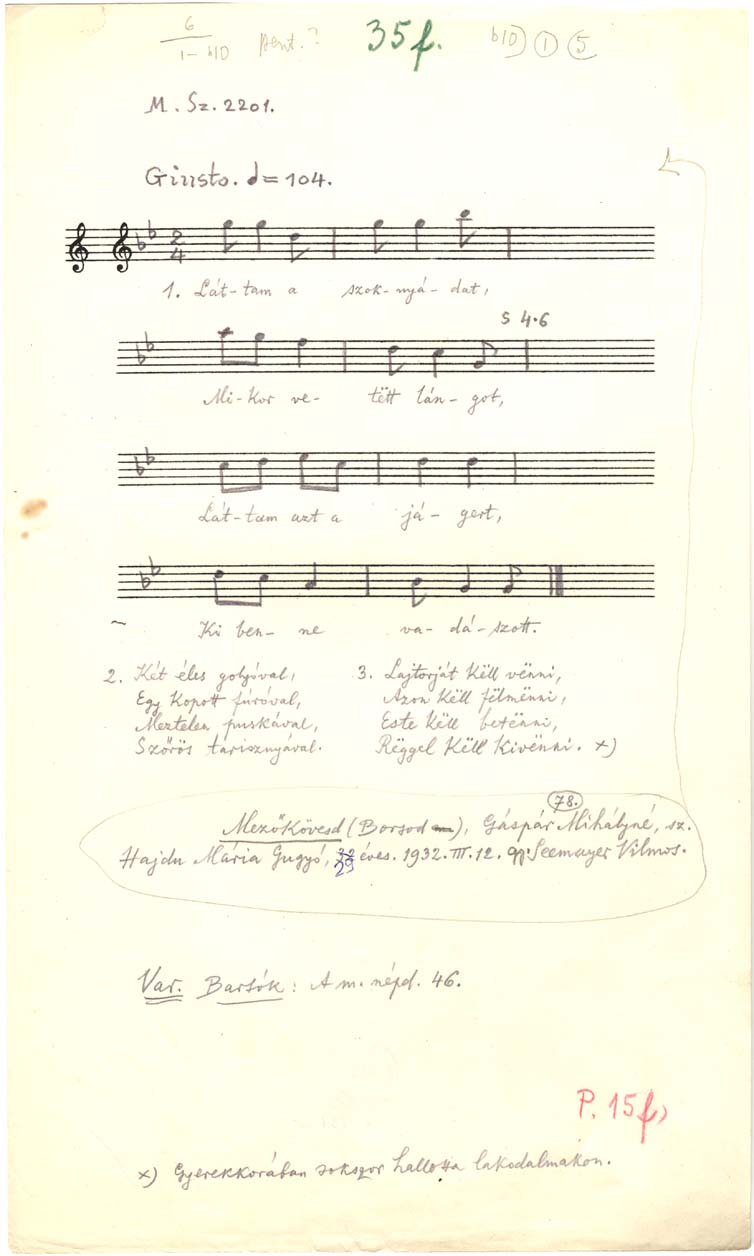 6
1-b10 pent.? 35f. b10) 1 5
M. Sz. 2201.
Giusto. = 104.
2
4
1. Lát-tam a szok-nyá-dat,
s 4·6
Mi-kor ve-tëtt lán-got,
Lát-tam azt a já-gert,
Ki ben-ne va-dá-szott.
2. Két éles golyóval, 3. Lajtorját këll vënni,
Egy kopott fúróval, Azon këll fëlmënni,
Meztelen puskával, Este këll betënni,
Szőrös tarisznyával. Rëggel këll kivënni. x)
78.
Mezőkövesd (Borsod), Gáspár Mihályné, sz.
Hajdu Mária Gugyó, 29 éves. 1932. III. 12. gy. Seemayer Vilmos.
Var. Bartók: A m. népd. 46.
P. 15f,
x) Gyerekkorában sokszor hallotta lakodalmakon.